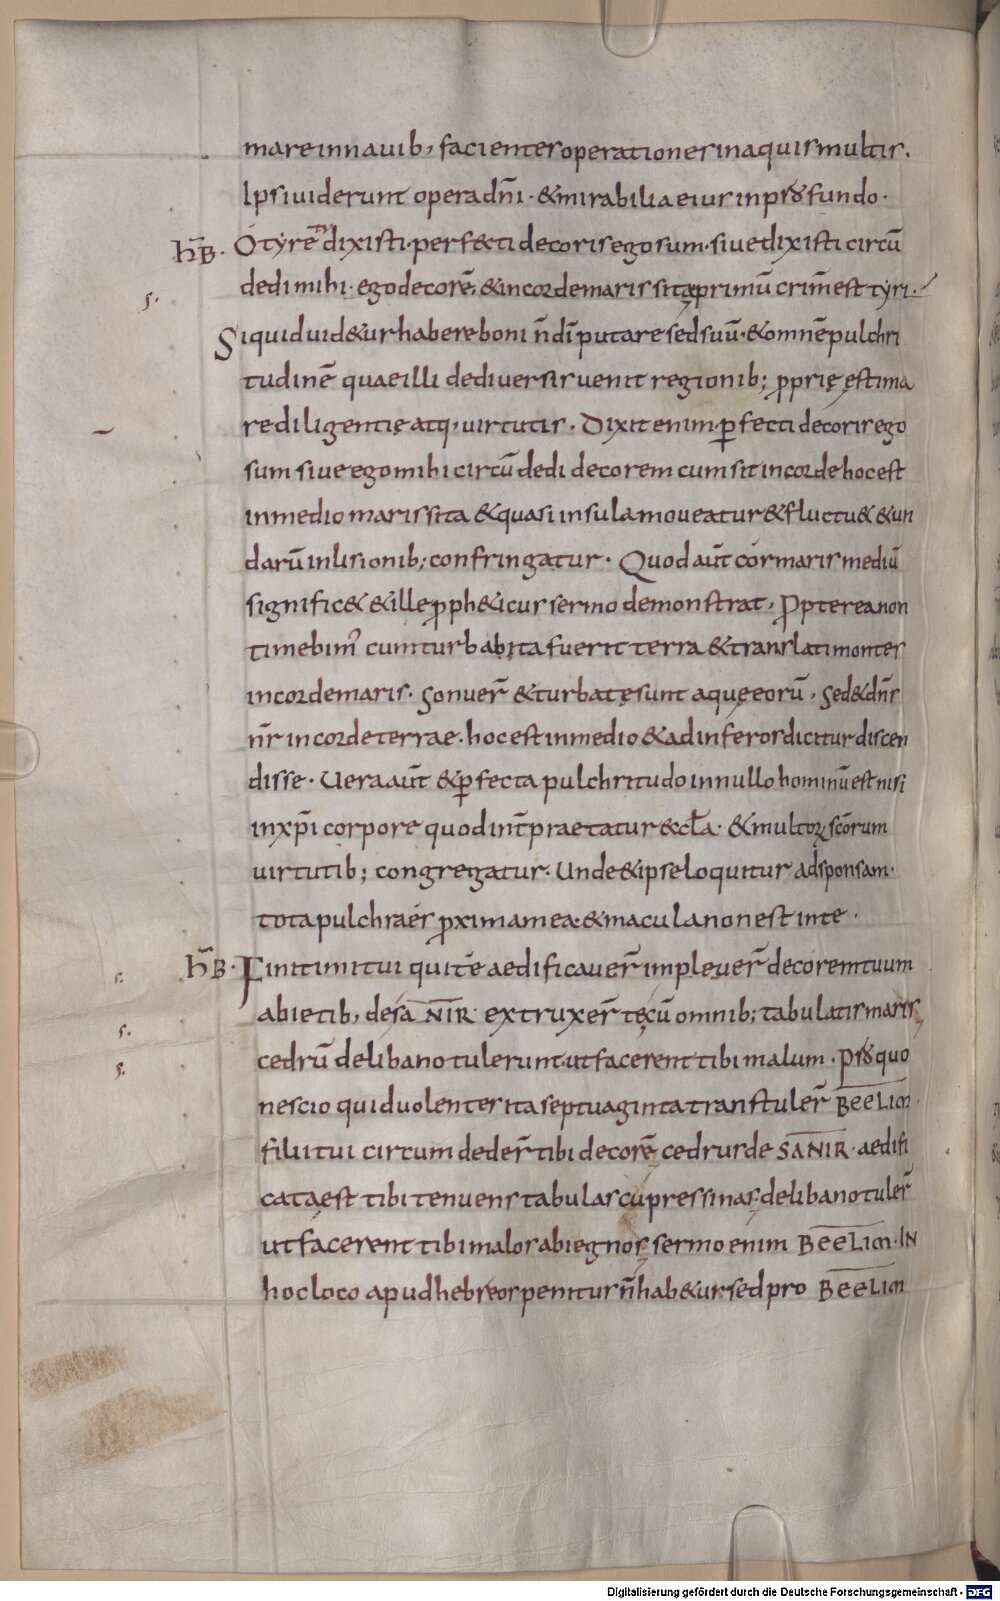 mare in navib; facientes operationes in aquis multis.
Ipsi viderunt opera dñi · & mirabilia eius in profundo ·
hB̄ · O tyre tu dixisti · perf&ti decoris ego sum · sive dixisti circū
dedi mihi · ego decorē, & in corde maris sita primū crimē est tyri ·
Si quid vid&ur habere boni ñ dī putare sed suū · & omnē pulchri
tudinē quae illi de diversis venit regionib; ꝓprię ęstima
re diligentię atq; virtutis · Dixit enim ꝑfecti decoris ego
sum sive ego mihi circū dedi decorem cum sit in corde hoc est
in medio maris sita & quasi insula moveatur & fluctu& & un
darū inlisionib; confringatur · Quod aūt cor maris mediū
signific& & ille ꝓph&icus sermo demonstrat, Ꝓpterea non
timebim' cum turbabita fuerit terra & translati montes
in corde maris · Sonuer̄ & turbatę sunt aquę eorū · Sed & dñs
nr̄ in corde terrae · hoc est in medio & ad inferos dicitur discen
disse · Vera aūt & ꝑfecta pulchritudo in nullo hominū est nisi
in xp̄i corpore quod int̄praetatur ęccła · & multoꝝ scōrum
virtutib; congregatur · Unde & ipse loquitur ad sponsam ·
tota pulchra és ꝓxima mea · & macula non est in te ·
hB̄ · Finitimi tui qui te aedificaver̄ implever̄ decorem tuum
abietib, de SANIR extruxer̄ te cū omnib; tabulatis maris
cedrū de libano tulerunt · ut facerent tibi malum · Pro quo
nescio quid volentes ita septuaginta transtuler̄ BEELIM ·
filii tui circumdeder̄ tibi decorē cedrus de SANIR · aedifi
cata est tibi tenuens tabulas cupressinas · de libano tuler̄
ut facerent tibi malos abiegnos, sermo enim BEELIM · IN
hoc loco apud hebreos penitus ñ hab&ur sed pro BEELIM
Digitalisierung gefördert durch die Deutsche Forschungsgemeinschaft - DFG